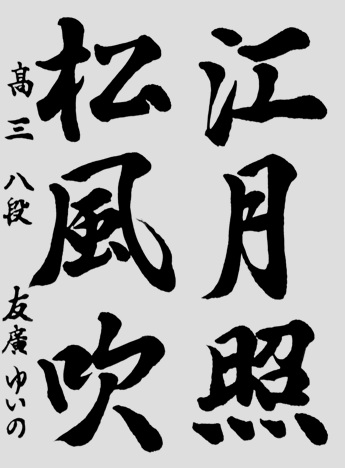 江月照
松風吹
髙三 八段 友廣ゆいの